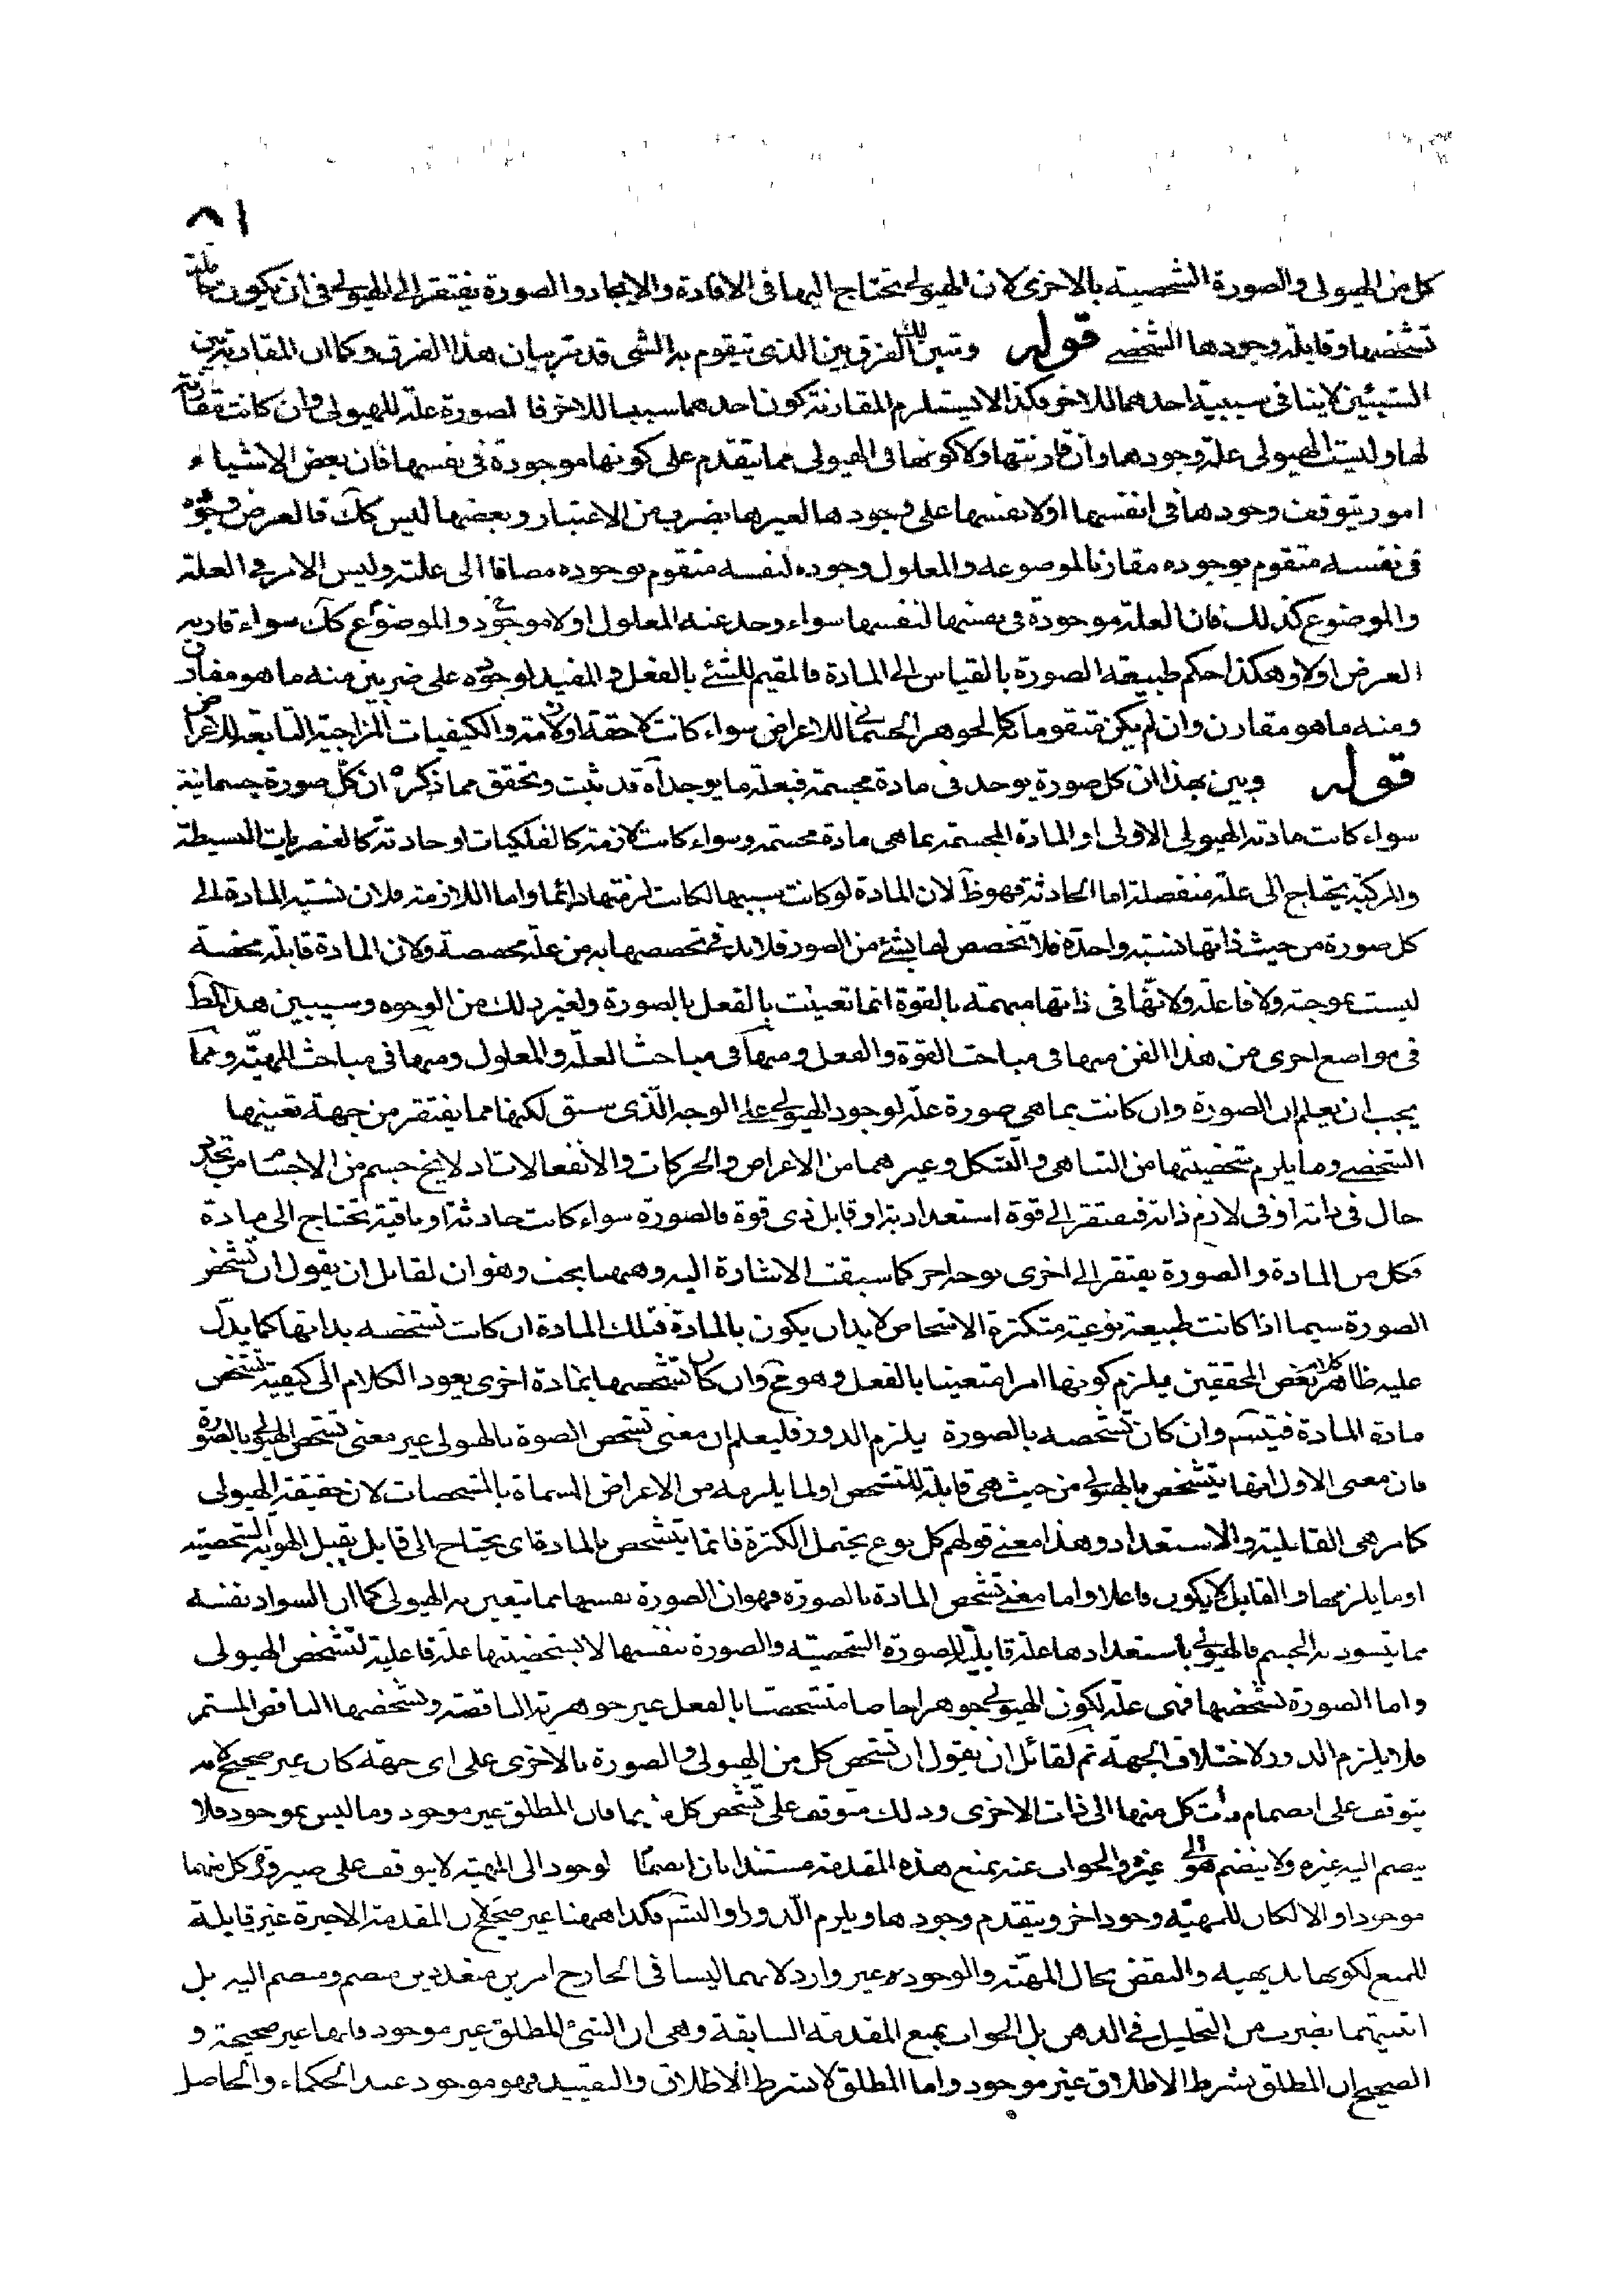 ٨١
كل من الهيولى والصورة الشخصية بالاخرى لان الهيولى تحتاج اليها فى الافادة والايجاد والصورة يفتقر الى الهيولى فى ان يكون حاملة
تشخصها وقابلة وجودها الشخصى قوله وتبين لك الفرق بين الذى يتقوم به الشى قد مر بيان هذا الفرق وكما ان المقارنة بين
الشيئين لا ينافى سببية احدهما للاخر فكذا لا يستلزم المقارنة كون احدهما سببا للاخر فالصورة علة للهيولى وان كانت مقارنة
لها وليست الهيولى علة وجودها وان قارنتها ولا كونها فى الهيولى مما يتقدم على كونها موجودة فى نفسها فان بعض الاشياء
امور يتوقف وجودها فى انفسها او لانفسها على وجودها لغيرها بضرب من الاعتبار وبعضها ليس كك فالعرض وجوده
فى نفسه متقوم بوجوده مقارنا لموضوعه والمعلول وجوده لنفسه متقوم بوجوده مضافا الى علته وليس الامر فى العلة
والموضوع كذلك فان العلة موجودة فى نفسها لنفسها سواء وجد عنه المعلول او لا موجود والموضوع كك سواء قارنه
العرض اولا وهكذا حكم طبيعة الصورة بالقياس الى المادة فالمقيم للشئ بالفعل والمفيد لوجوده على ضربين منه ما هو مفارق
ومنه ما هو مقارن وان لم يكن متقوما به كالجوهر الجسمانى للاعراض سواء كانت لاحقة او لازمة والكيفيات المزاجية التابعة للاعراض
قوله وبين بهذا ان كل صورة يوجد فى مادة مجسمة فبعلة ما يوجد آه قد ثبت وتحقق مما ذكره ان كل صورة جسمانية
سواء كانت مادته الهيولى الاولى او المادة المجسمة بما هى مادة مجسمة وسواء كانت لازمة كالفلكيات او حادثة كالعنصريات البسيطة
والمركبة يحتاج الى علة منفصلة اما الحادثة فهو ظ لان المادة لو كانت سببها لكانت لزمتها دائما واما اللازمة فلان نسبة المادة الى
كل صورة من حيث ذاتها نسبة واحدة فلا تخصص لها بشئ من الصور فلا بد فى تخصصها به من علة مخصصة ولان المادة قابلة محضة
ليست بموجبة ولا فاعلة ولانها فى ذاتها مبهمة بالقوة انما تعينت بالفعل بالصورة ولغير ذلك من الوجوه وسيبين هذا المط
فى مواضع اخرى من هذا الفن منها فى مباحث القوة والفعل ومنها فى مباحث العلة والمعلول ومنها فى مباحث المهية ومما
يجب ان يعلم ان الصورة وان كانت بما هى صورة علة لوجود الهيولى على الوجه الذى سبق لكنها مما يفتقر من جهة تعينها
الشخصى وما يلزم شخصيتها من التناهى والتشكل وغيرهما من الاعراض والحركات والانفعالات اذ لا يخ جسم من الاجسام من تجدد
حال فى ذاته او فى لازم ذاته فيفتقر الى قوة استعدادية او قابل ذى قوة فالصورة سواء كانت حادثة او باقية تحتاج الى مادة
فكل من المادة والصورة يفتقر الى اخرى بوجه اخر كما سبقت الاشارة اليه وههنا بحث وهو ان لقائل ان يقول ان تشخص
الصورة سيما اذا كانت طبيعة نوعية متكثرة الاشخاص لا بد ان يكون بالمادة فتلك المادة ان كانت تشخصه بذاتها كما يدل
عليه ظاهر كلام بعض المحققين فيلزم كونها امرا متعينا بالفعل وهو مح وان كان تشخصها بمادة اخرى يعود الكلام الى كيفية تشخص
مادة المادة فيتسم وان كان تشخصه بالصورة يلزم الدور فليعلم ان معنى تشخص الصورة بالهيولى غير معنى تشخص الهيولى بالصورة
فان معنى الاول انها يتشخص بالهيولى من حيث هى قابلة للتشخص او لما يلزمه من الاعراض المسماة بالمشخصات لان حقيقة الهيولى
كما مر هى القابلية والاستعداد وهذا معنى قولهم كل نوع يحتمل الكثرة فانما يتشخص بالمادة اى يحتاج الى قابل يقبل الهوية الشخصية
او ما يلزمها والقابل لا يكون فاعلا واما معنى تشخص المادة بالصورة فهو ان الصورة نفسها مما يتعين به الهيولى كما ان السواد نفسه
مما يتسود به الجسم فالهيولى باستعدادها علة قابلية للصورة الشخصية والصورة بنفسها لا بشخصيتها علة فاعلية لتشخص الهيولى
واما الصورة بشخصها فهى علة لكون الهيولى جوهرا خاصا متشخصا بالفعل غير جوهريته الناقصة وتشخصها الناقص المستمر
فلا يلزم الدور لاختلاف الجهة ثم لقائل ان يقول ان تشخص كل من الهيولى والصورة بالاخرى على اى جهة كان غير صحيح لانه
يتوقف على انضمام ذات كل منهما الى ذات الاخرى وذلك متوقف على تشخص كل منهما فان المطلق غير موجود وما ليس بموجود فلا
ينضم اليه غيره ولا ينضم هو الى غيره والجواب عنه بمنع هذه المقدمة مستندا بان انضمام الوجود الى المهية لا يتوقف على صيرورة كل منهما
موجودا والا لكان للمهية وجود اخر ويتقدم وجودها ويلزم الدور او التسم فكذا ههنا غير صحيح لان المقدمة الاخيرة غير قابلة
للمنع لكونها بديهية والنقض بحال المهية والوجود غير وارد لانهما ليسا فى الخارج امرين متعددين منضم ومنضم اليه بل
اثنينيتهما بضرب من التحليل فى الذهن بل الجواب بمنع المقدمة السابقة وهى ان الشئ المطلق غير موجود فانها غير صحيحة و
الصحيح ان المطلق بشرط الاطلاق غير موجود واما المطلق لا بشرط الاطلاق والتقييد فهو موجود عند الحكماء والحاصل